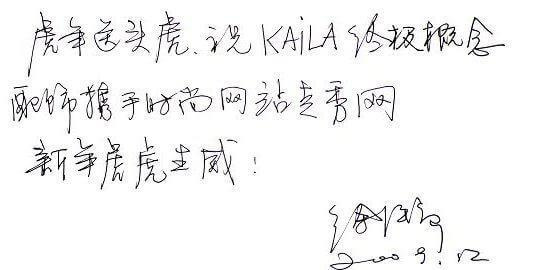 虎年送头虎.祝KAiLA终极概念
配饰携手时尚网站走秀网
新年虎虎生威!
2009.12